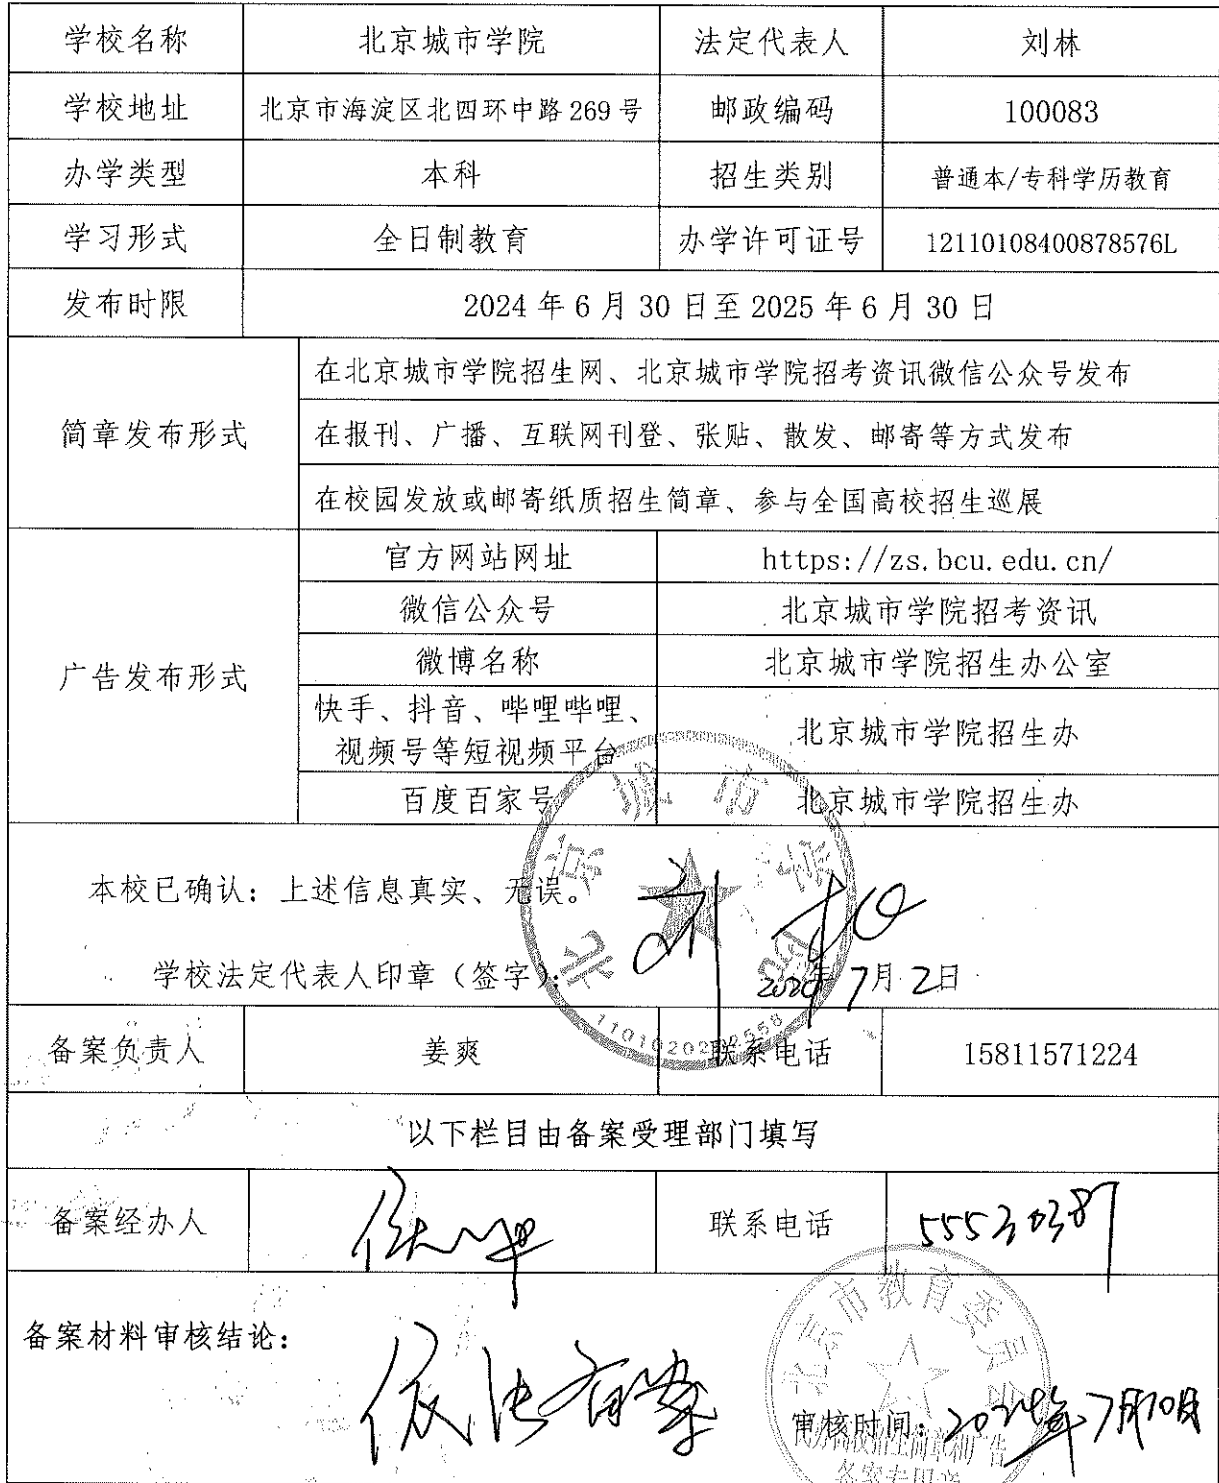 学校名称 北京城市学院 法定代表人 刘林
学校地址 北京市海淀区北四环中路269号 邮政编码 100083
办学类型 本科 招生类别 普通本/专科学历教育
学习形式 全日制教育 办学许可证号 12110108400878576L
发布时限 2024年6月30日至2025年6月30日
简章发布形式
在北京城市学院招生网、北京城市学院招考资讯微信公众号发布
在报刊、广播、互联网刊登、张贴、散发、邮寄等方式发布
在校园发放或邮寄纸质招生简章、参与全国高校招生巡展
广告发布形式
官方网站网址 https://zs.bcu.edu.cn/
微信公众号 北京城市学院招考资讯
微博名称 北京城市学院招生办公室
快手、抖音、哔哩哔哩、
视频号等短视频平台 北京城市学院招生办
百度百家号 北京城市学院招生办
北京城市学院
本校已确认：上述信息真实、无误。
学校法定代表人印章（签字）： 刘林
2024年7月2日
备案负责人 姜爽 联系电话 15811571224
以下栏目由备案受理部门填写
备案经办人 联系电话 55530387
备案材料审核结论：
依法备案
北京市教育委员会
审核时间：2024年7月10日
民办高校招生简章和广告
备案专用章